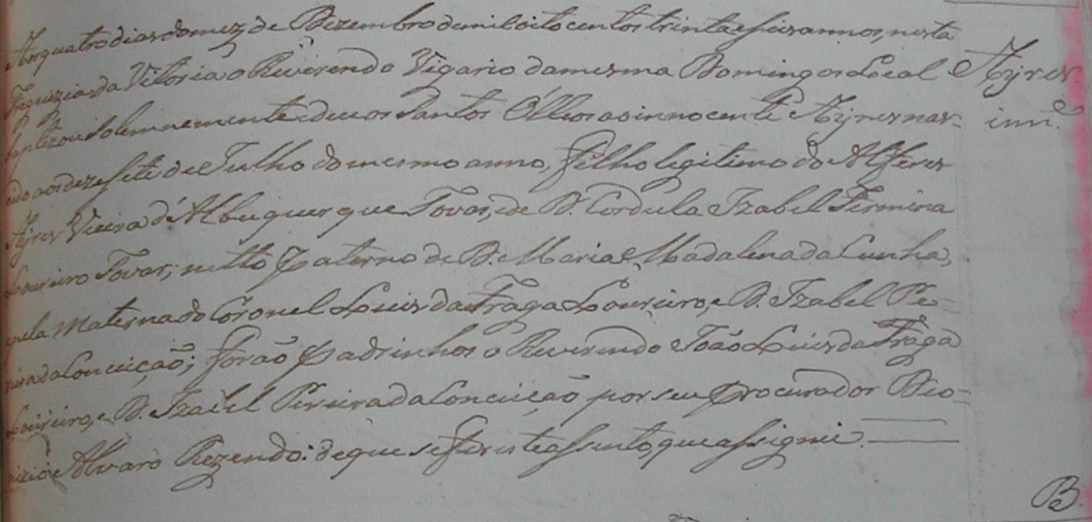 Aos quatro dias do mez de Dezembro de mil oito centos trinta e seis annos, nesta
Freguezia da Vitoria o Reverendo Vigario da mesma Domingos Leal
bautizou solemnemente e deu os Santos Óleos ao innocente Ayres nas-
cido aos dezesete de Julho do mesmo anno, filho legitimo do Alferes
Ayres Vieira d'Albuquerque Tovar, e de D. Cordula Izabel Firmina
Loureiro Tovar; netto paterno de D. Maria Madalena da Cunha,
e pela materna do Coronel Luis da Fraga Loureiro, e D. Izabel Pe-
reira da Conceição; forão padrinhos o Reverendo João Luis da Fraga
Loureiro, e D. Izabel Pereira da Conceição por seu procurador Deo-
nicio Alvaro Rezendo: de que se fez este assento, que assignei.
Ayres
inn.e
B